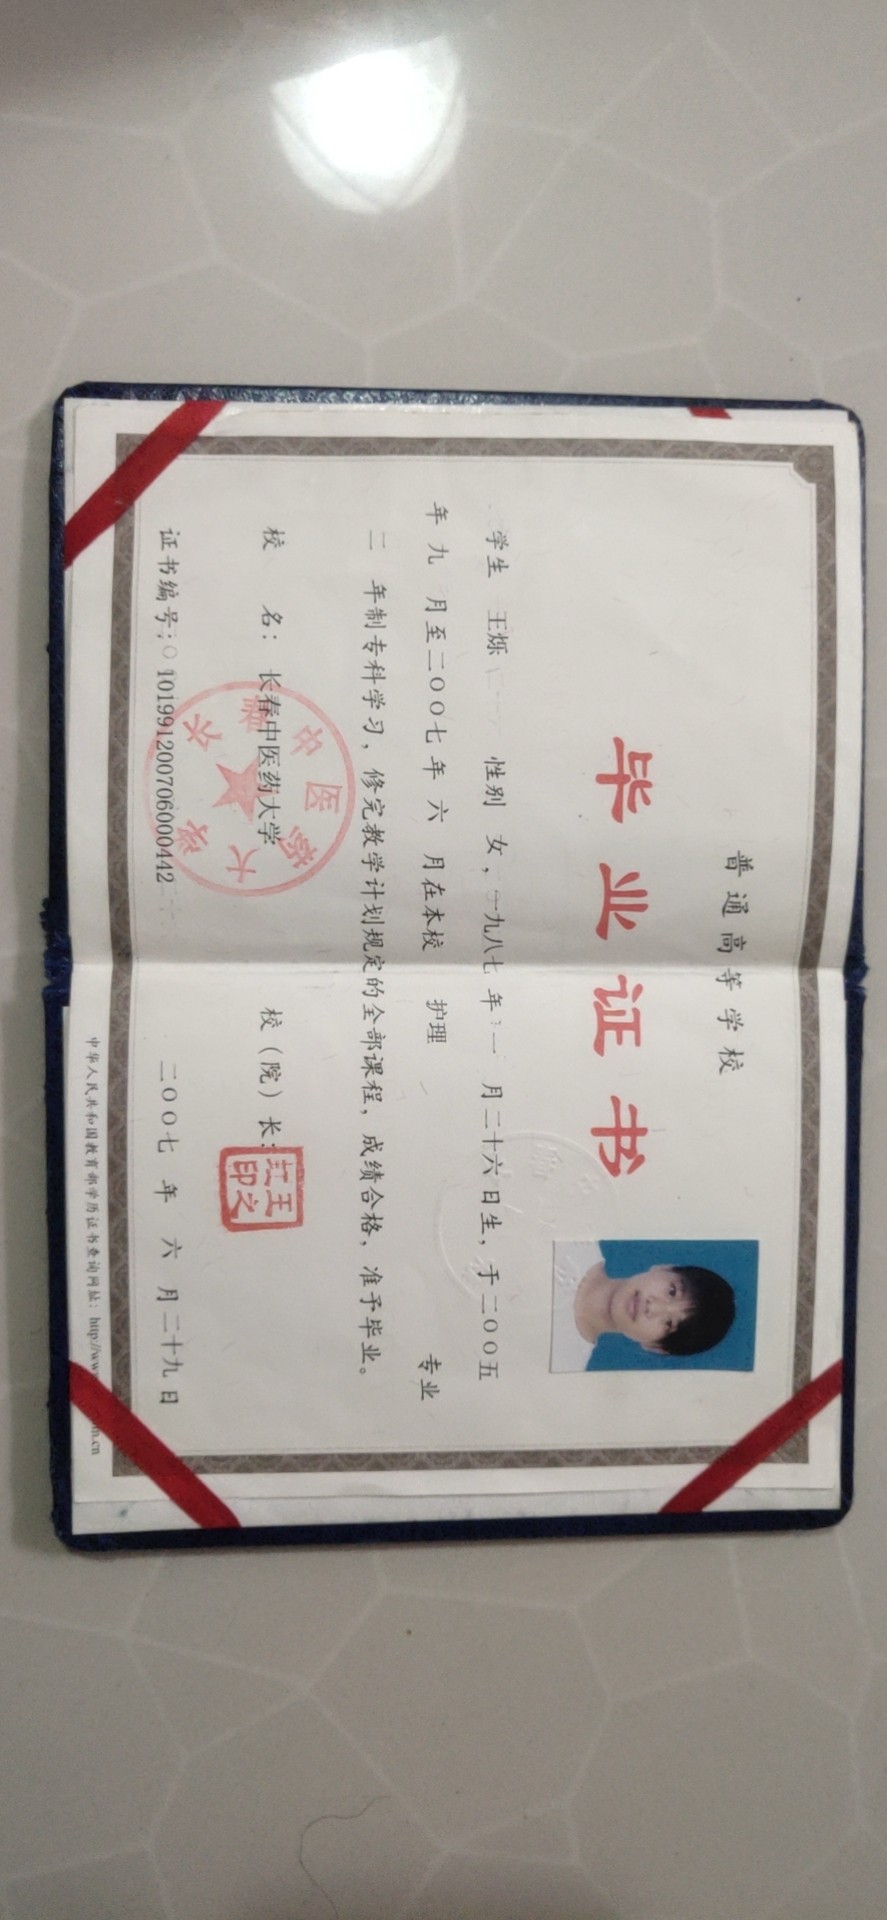 普通高等学校
毕业证书
学生 王烁 性别 女，一九八七 年 一 月二十六日生，于二〇〇五
年 九 月至二〇〇七年 六 月在本校 护理 专业
二 年制专科学习，修完教学计划规定的全部课程，成绩合格，准予毕业。
校 名：长春中医药大学 校（院）长：
王之虹印
证书编号：101991200706000442 二〇〇七 年 六 月二十九日
中华人民共和国教育部学历证书查询网址：http://ww